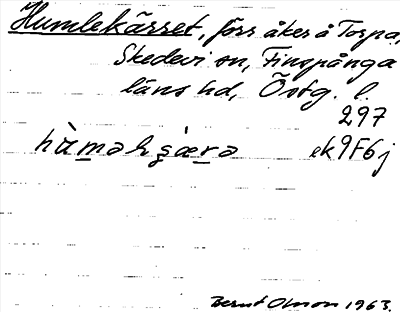 Humlekärret, förr åker å Torpa,
Skedevi sn, Finspånga
läns hd, Östg. l.
297
hùməkşæ̀rə ek 9F6j
Bernt Olsson 1963.